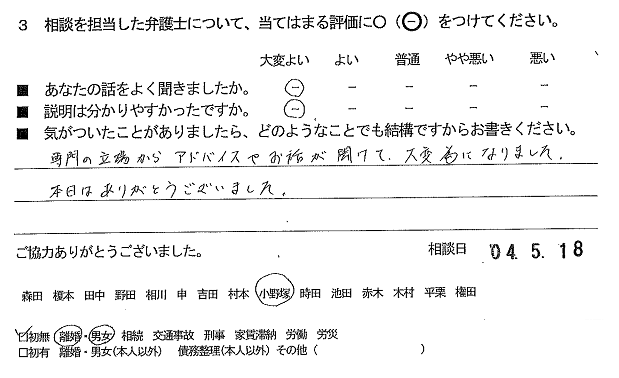 3 相談を担当した弁護士について、当てはまる評価に○（㊀）をつけてください。
大変よい よい 普通 やや悪い 悪い
■ あなたの話をよく聞きましたか。 － － － － －
■ 説明は分かりやすかったですか。 － － － － －
■ 気がついたことがありましたら、どのようなことでも結構ですからお書きください。
専門の立場からアドバイスやお話が聞けて、大変為になりました。
本日はありがとうございました。
ご協力ありがとうございました。 相談日 04. 5. 18
森田 榎本 田中 野田 相川 申 吉田 村本 小野塚 時田 池田 赤木 木村 平栗 権田
□初無 離婚・男女 相続 交通事故 刑事 家賃滞納 労働 労災
□初有 離婚・男女(本人以外) 債務整理(本人以外) その他 ( )